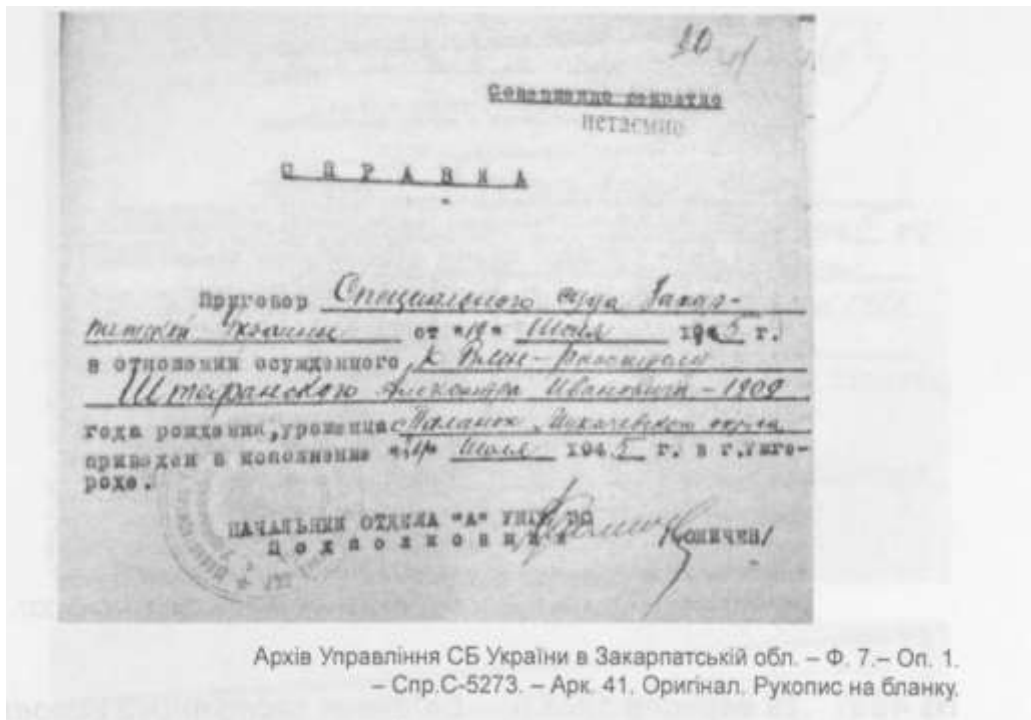 20
Совершенно секретно
нетаємно
СПРАВКА
Приговор Специального суда Закар-
патской Украины от "19" Июля 1945 г.
в отношении осужденного к ВМН – расстрелу
Штефанского Александра Ивановича – 1909
года рождения, уроженца Паланок, Мукачевского округа
приведен в исполнение Июля 1945 г. в г.Ужго-
роде.
НАЧАЛЬНИК ОТДЕЛА "А"
Подполковник
Архів Управління СБ України в Закарпатській обл. – Ф. 7.– Оп. 1.
– Спр.С-5273. – Арк. 41. Оригінал. Рукопис на бланку.